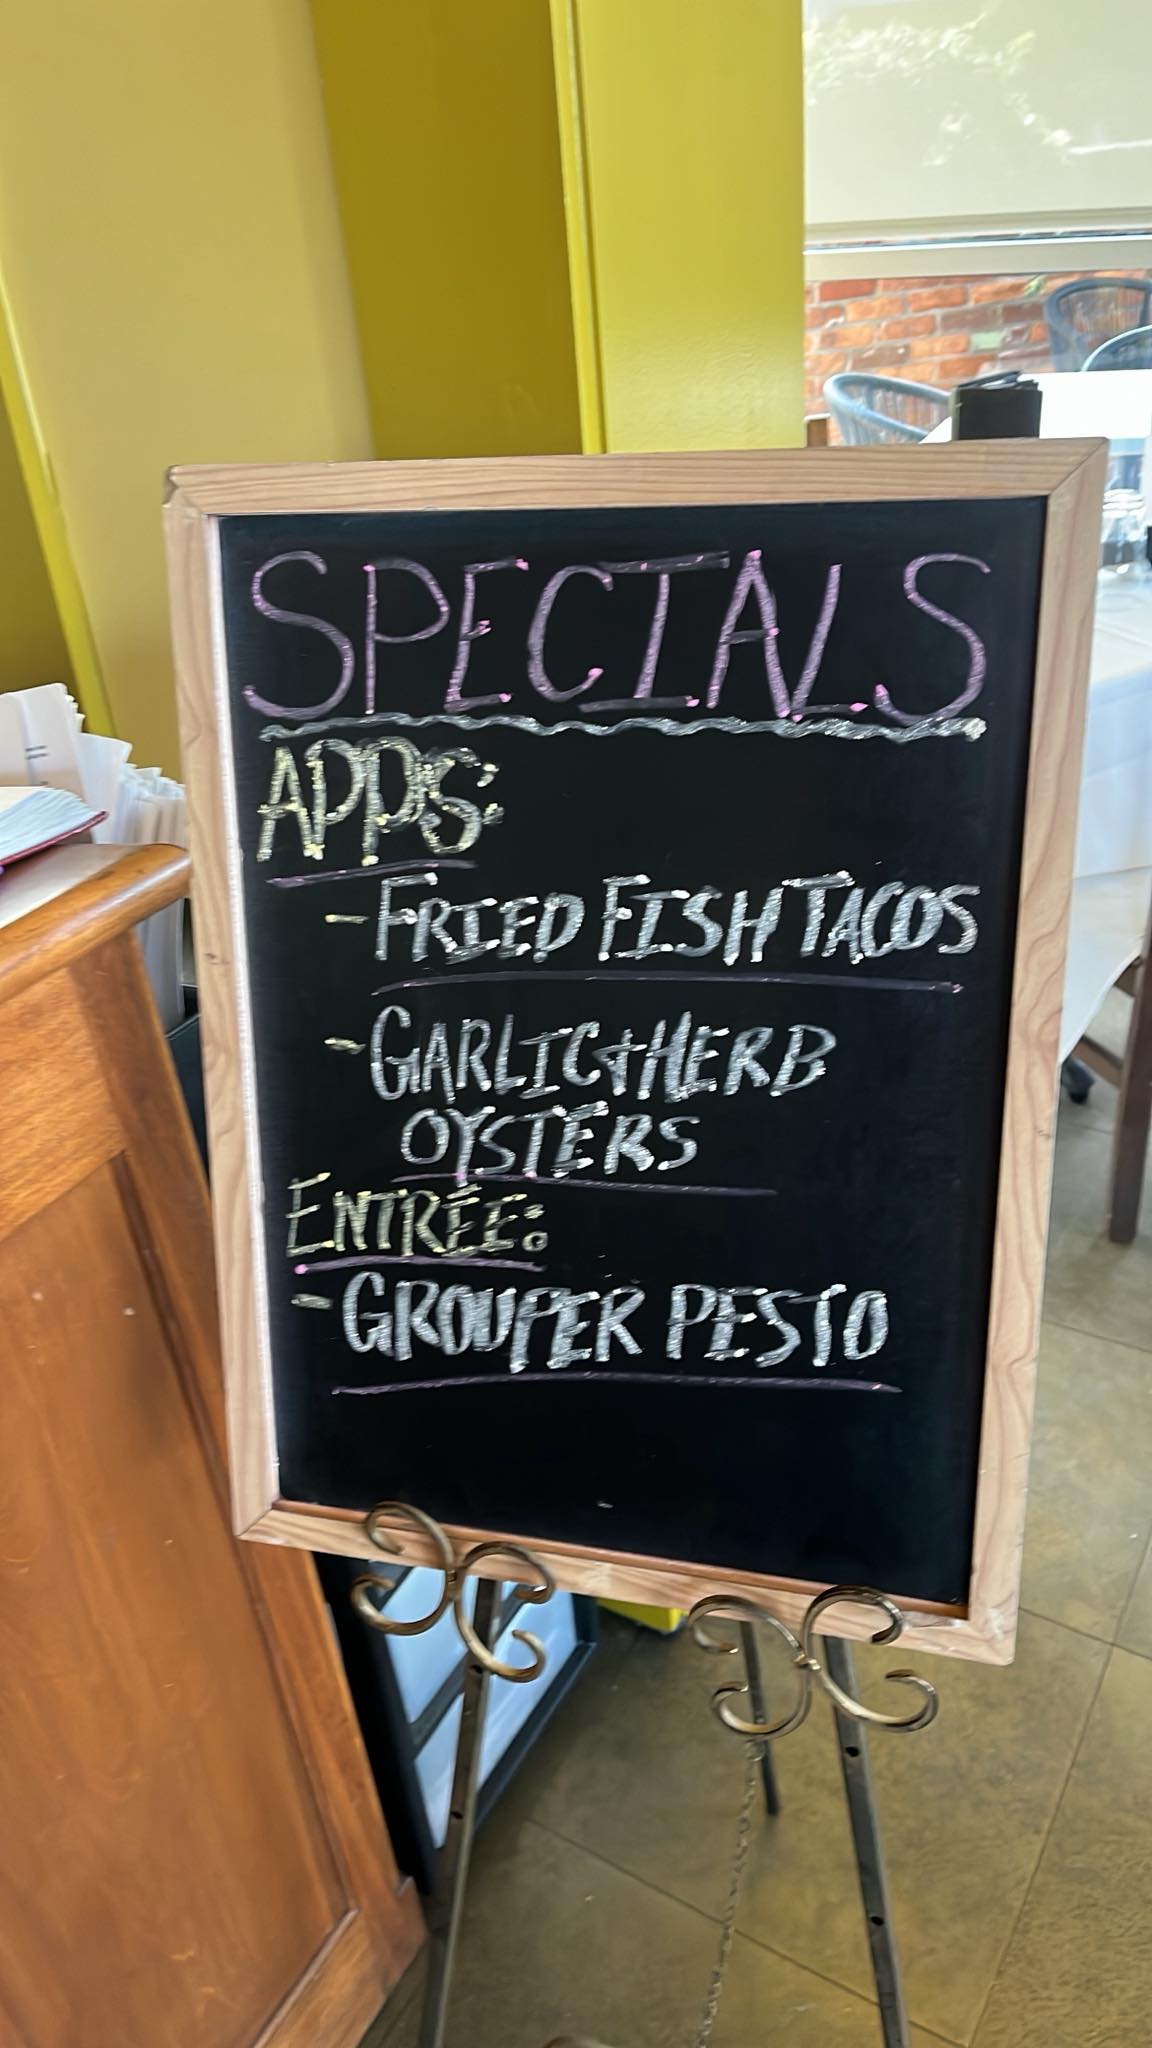 SPECIALS
APPS:
- FRIED FISH TACOS
- GARLIC + HERB
OYSTERS
ENTRÉE:
- GROUPER PESTO